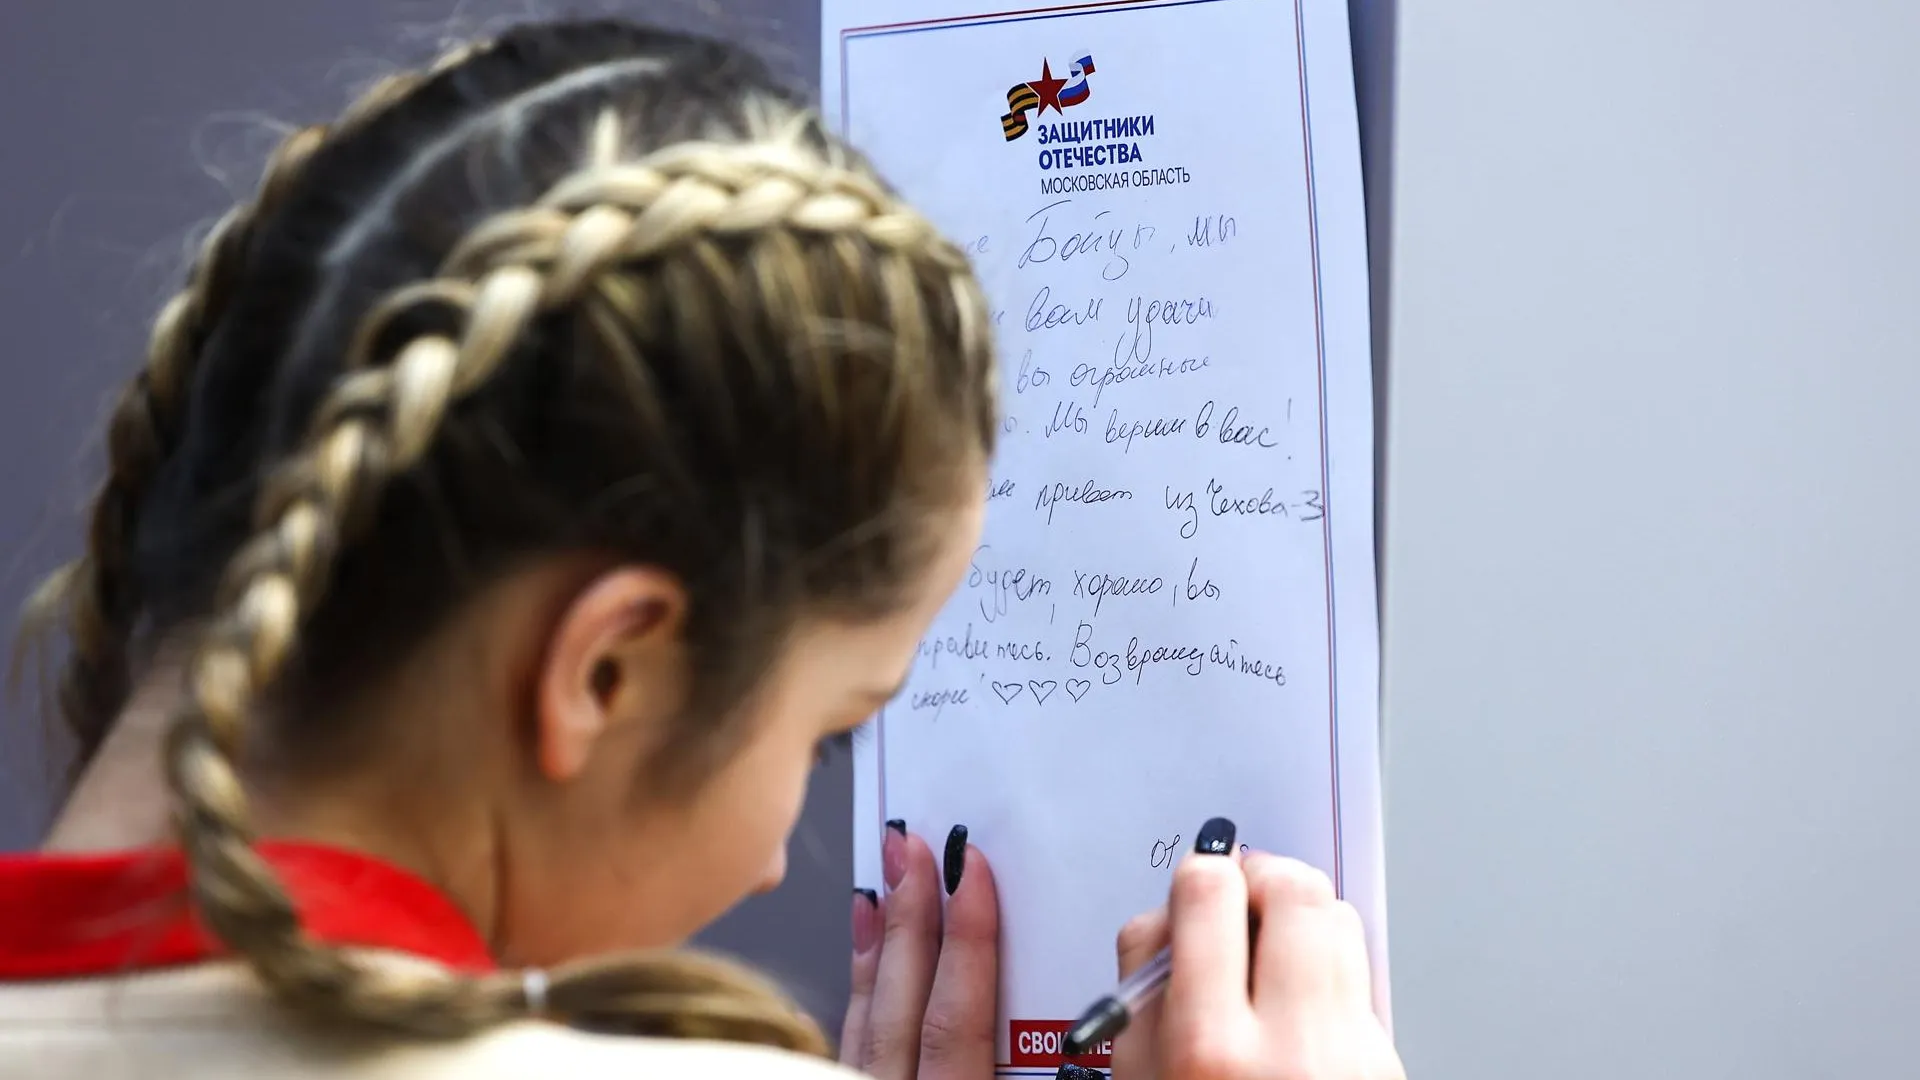 ЗАЩИТНИКИ
ОТЕЧЕСТВА
МОСКОВСКАЯ ОБЛАСТЬ
Бойцы, мы
вам удачи
вы огромные
Мы верим в вас!
привет из Чехова-3
будет хорошо, вы
Возвращайтесь
скорее! ♡♡♡